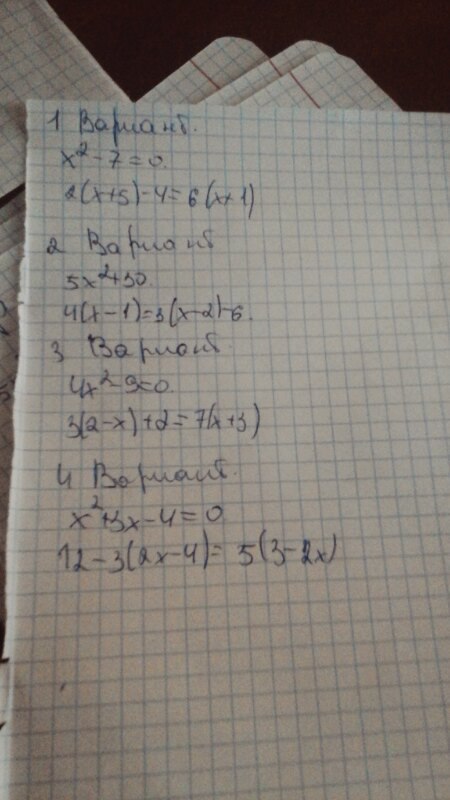 1 Вариант.
x² - 7 = 0.
2(x+5) - 4 = 6(x+1)
2 Вариант
5x² + 30.
4(x-1) = 3(x-2) - 6.
3 Вариант.
4x² - 9 = 0.
3(2-x) + 2 = 7(x+3)
4 Вариант.
x² + 3x - 4 = 0
12 - 3(2x-4) = 5(3-2x)